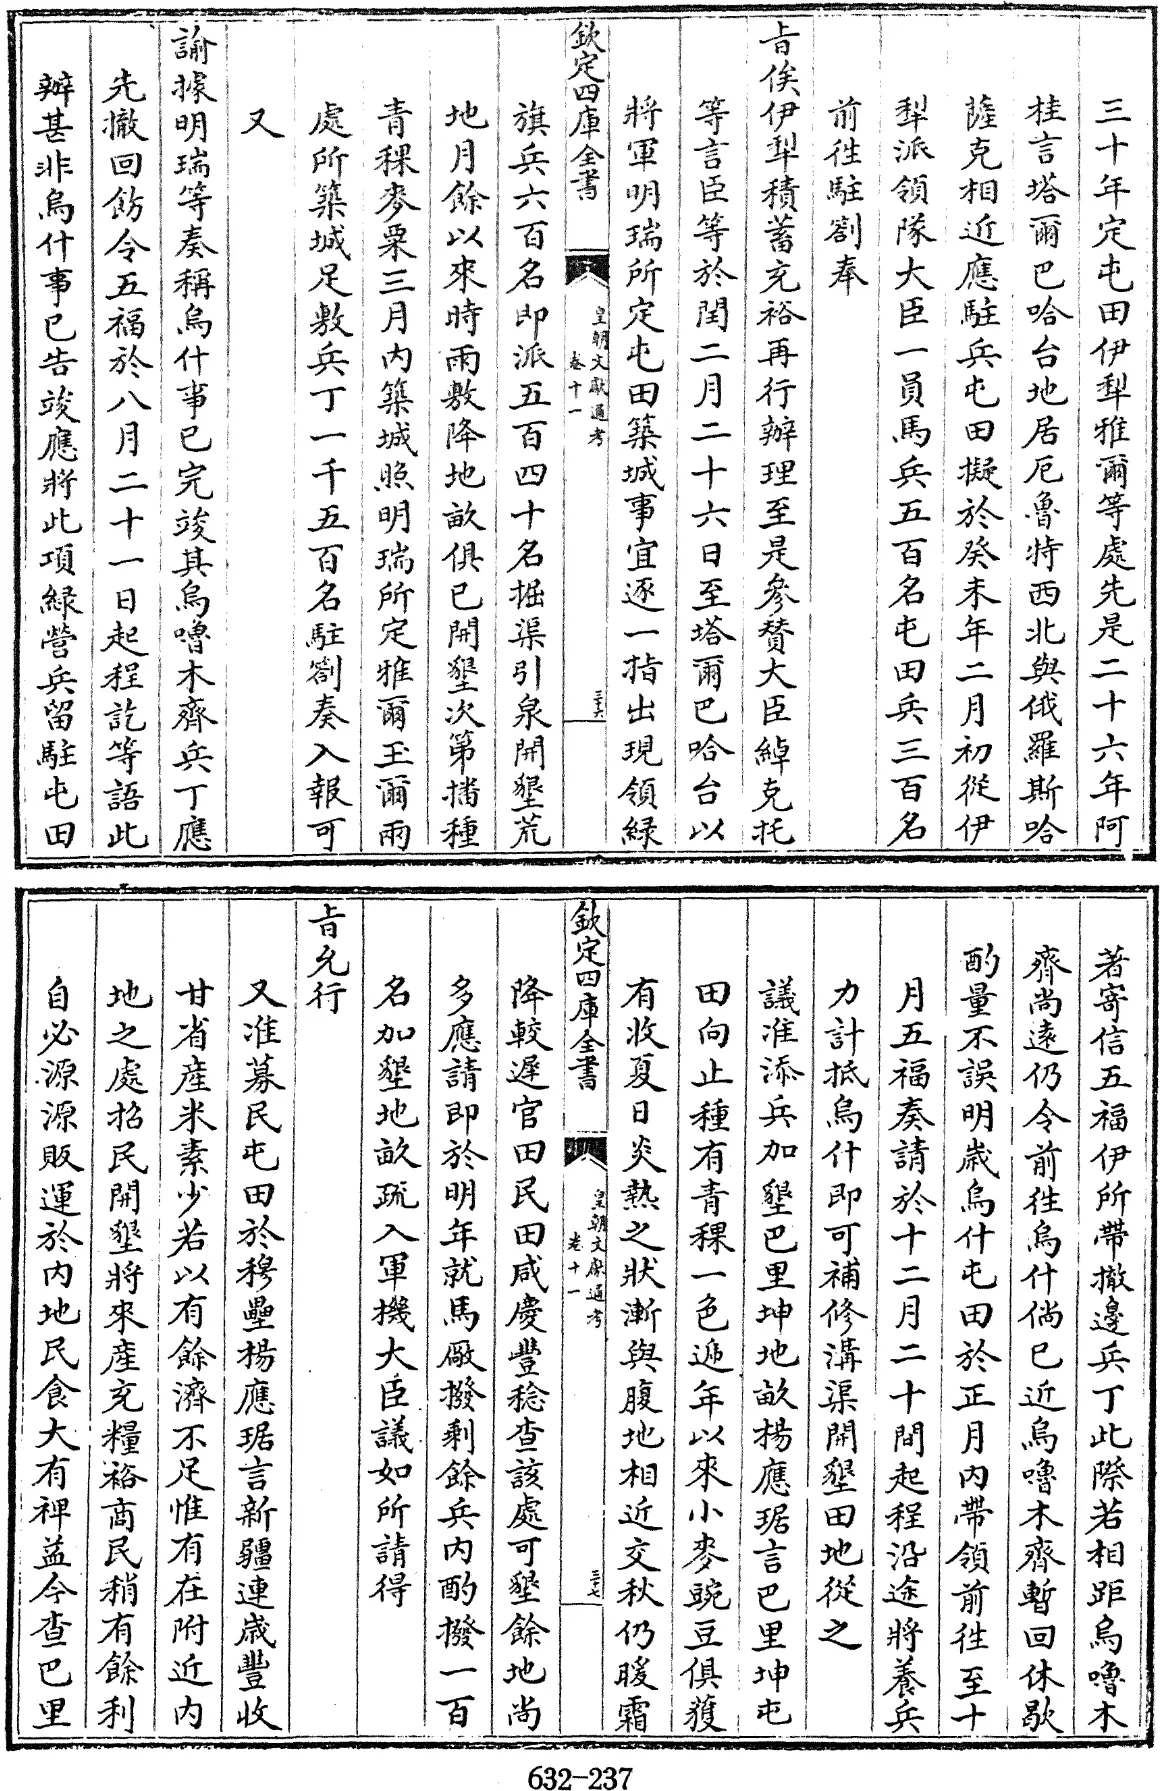 三十年定屯田伊犁雅爾等處先是二十六年阿
桂言塔爾巴哈台地居厄魯特西北與俄羅斯哈
薩克相近應駐兵屯田擬於癸未年二月初從伊
犁派領隊大臣一員馬兵五百名屯田兵三百名
前徃駐劄奉
㫖俟伊犁積蓄充裕再行辦理至是參贊大臣綽克托
等言臣等於閏二月二十六日至塔爾巴哈台以
將軍明瑞所定屯田築城事宜逐一指出現領緑
欽定四庫全書
皇朝文獻通考
卷十一
三十六
旗兵六百名即派五百四十名掘渠引泉開墾荒
地月餘以來時雨敷降地畝俱已開墾次第播種
青稞麥粟三月內築城照明瑞所定雅爾玉爾兩
處所築城足敷兵丁一千五百名駐劄奏入報可
又
諭據明瑞等奏稱烏什事已完竣其烏嚕木齊兵丁應
先撤回飭令五福於八月二十一日起程訖等語此
辦甚非烏什事已告竣應將此項緑營兵留駐屯田
著寄信五福伊所帶撤邊兵丁此際若相距烏嚕木
齊尚遠仍令前徃烏什倘已近烏嚕木齊暫回休歇
酌量不誤明歲烏什屯田於正月內帶領前徃至十
月五福奏請於十二月二十間起程沿途將養兵
力計抵烏什即可補修溝渠開墾田地從之
議准添兵加墾巴里坤地畝楊應琚言巴里坤屯
田向止種有青稞一色遞年以來小麥豌豆俱獲
有收夏日炎熱之狀漸與腹地相近交秋仍暖霜
欽定四庫全書
皇朝文獻通考
卷十一
三十七
降較遲官田民田咸慶豐稔查該處可墾餘地尚
多應請即於明年就馬廠撥剩餘兵內酌撥一百
名加墾地畝疏入軍機大臣議如所請得
㫖允行
又准募民屯田於穆壘楊應琚言新疆連歲豐收
甘省産米素少若以有餘濟不足惟有在附近內
地之處招民開墾將來産充糧裕商民稍有餘利
自必源源販運於內地民食大有裨益今查巴里
632-237